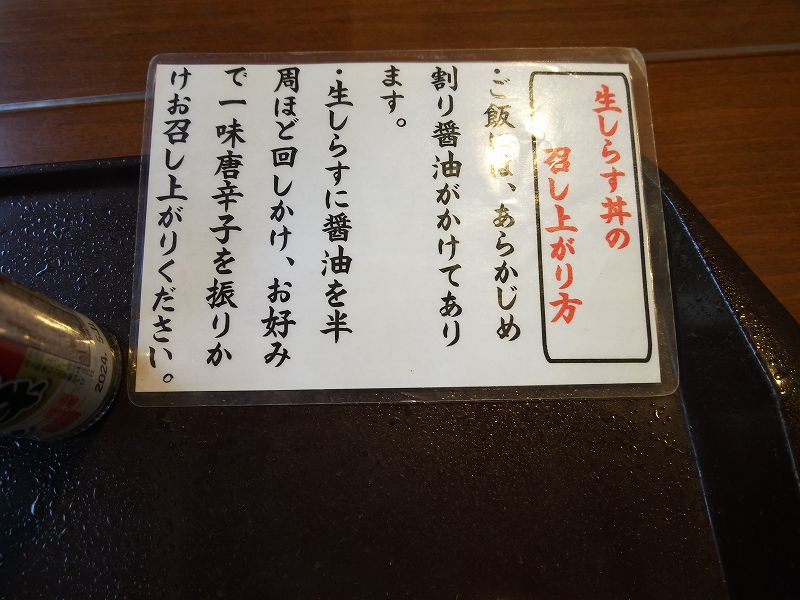 生しらす丼の
召し上がり方
・ご飯には、あらかじめ
割り醤油がかけてあり
ます。
・生しらすに醤油を半
周ほど回しかけ、お好み
で一味唐辛子を振りか
けお召し上がりください。
2024.